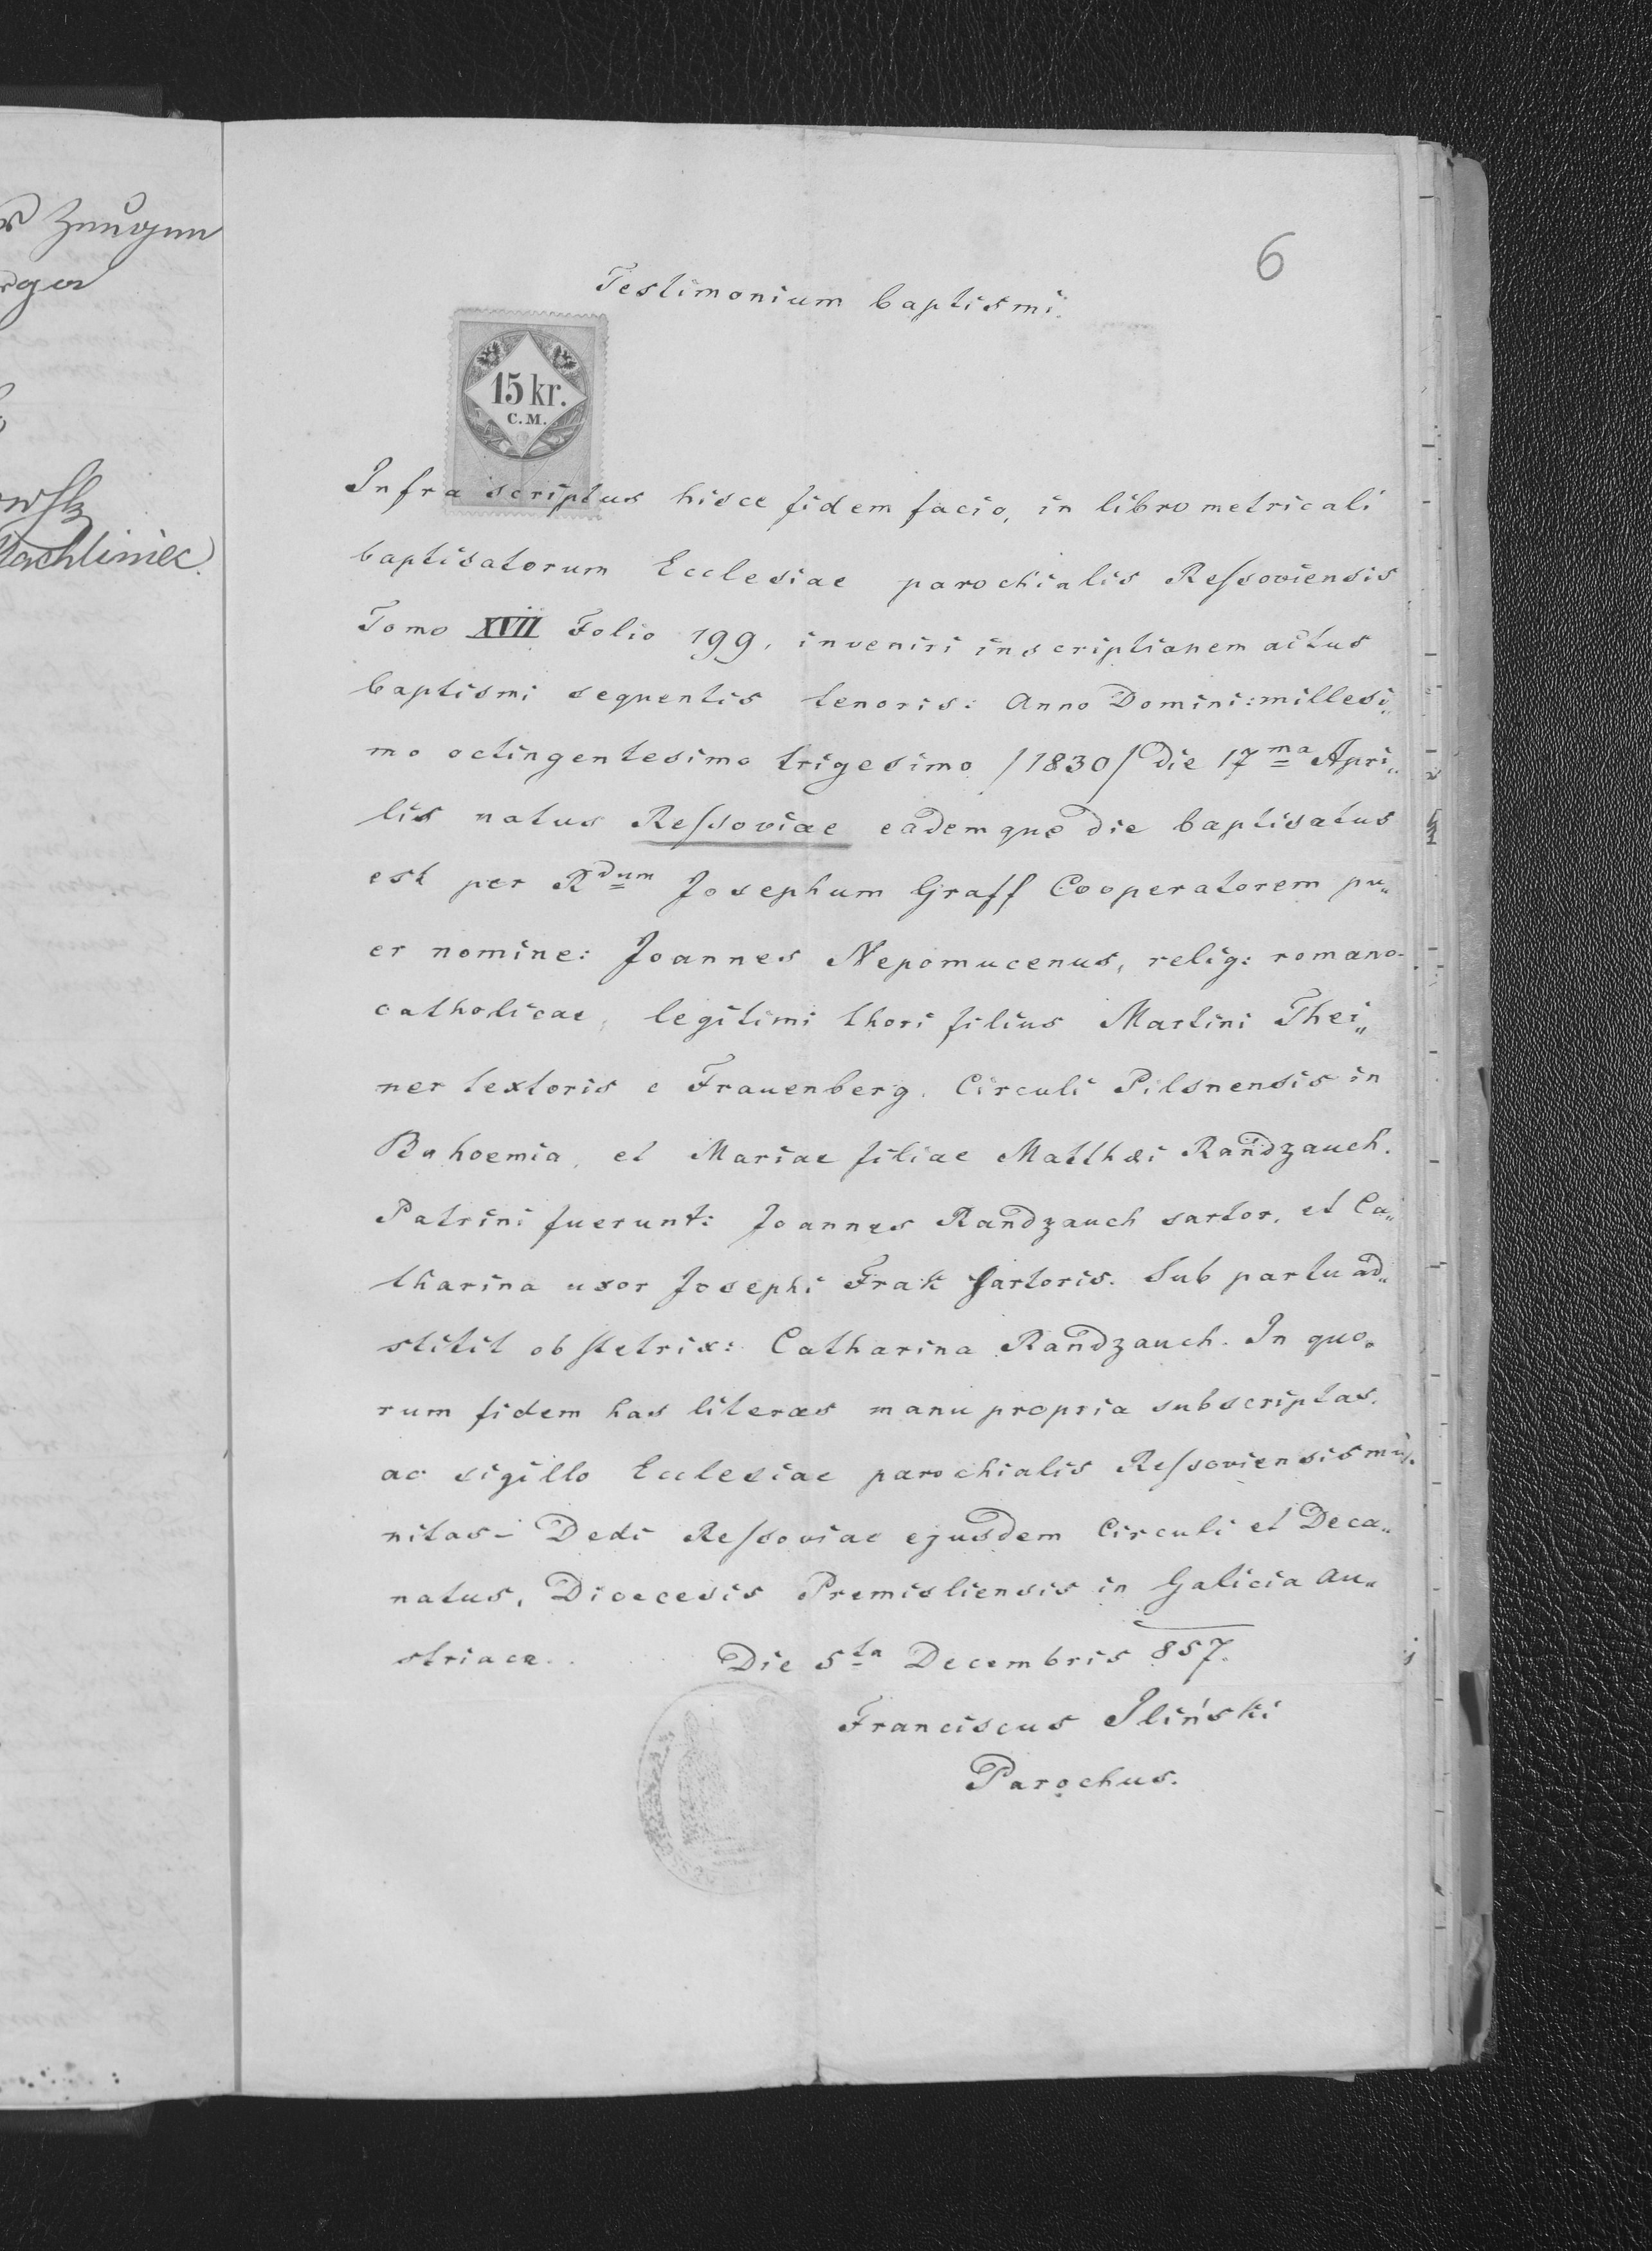 Zeugen
Machliniec.
6
Testimonium baptismi.
15 kr.
C.M.
Infra scriptus hisce fidem facio, in libro metricali
baptisatorum Ecclesiae parochialis Reſsoviensis
Tomo XVII Folio 199, inveniri inscriptionem actus
baptismi sequentis tenoris: Anno Domini: millesi„
mo octingentesimo trigesimo /1830/ die 17ma Apri„
lis natus Reſsoviae eademque die baptisatus
est per Rdum Josephum Graff Cooperatorem pu„
er nomine: Joannes Nepomucenus, relig: romano-
catholicae, legitimi thori filius Martini Thei„
ner textoris e Frauenberg, Circuli Pilsnensis in
Bohoemia, et Mariae filiae Matthæi Randzauch.
Patrini fuerunt: Joannes Randzauch sartor, et Ca„
tharina uxor Josephi Frak sartoris. Sub partu ad„
stitit obstetrix: Catharina Randzauch. In quo„
rum fidem has literas manu propria subscriptas,
ac sigillo Ecclesiae parochialis Reſsoviensis mu„
nitas – Dedi Reſsoviae ejusdem Circuli et Deca„
natus, Dioecesis Premisliensis in Galicia Au„
striaca. Die 5ta Decembris 857.
Franciscus Iliński
Parochus.